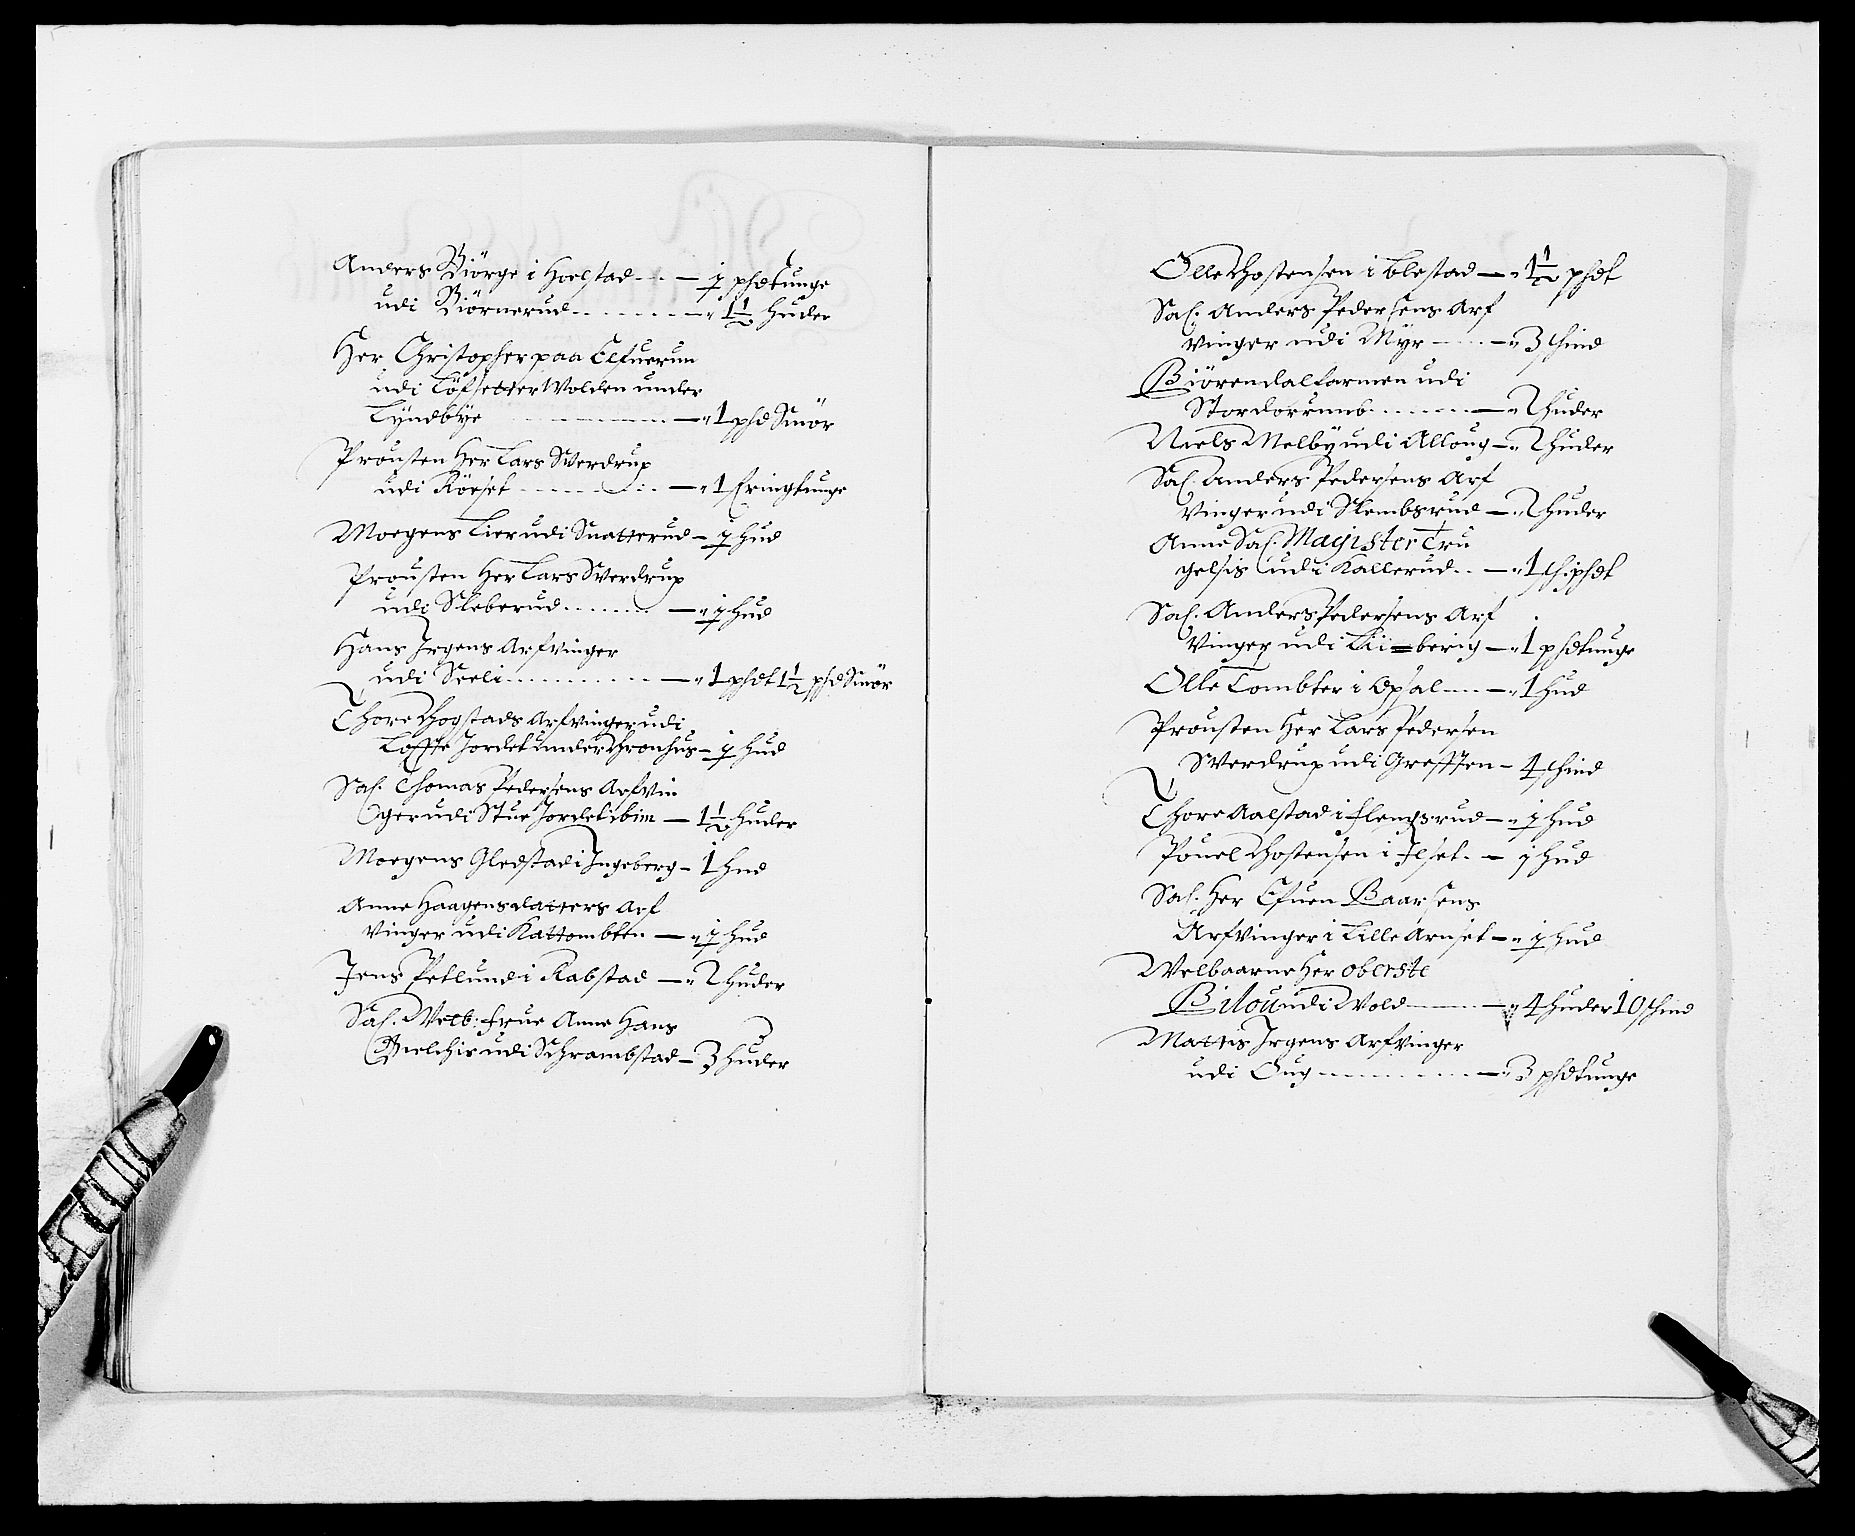 Anders Biørge i Hoelstad - ½ pfdtunge
udi Biørnerud - 1½ Huder
Her Christopher paa Elfuerun
udi Løfsetter Wolden under
Lyndbye - 1 pfd Smör
Prousten Her Lars Swerdrup
udi Röeset - 1 fringtunge
Moegens Lier udi Snatterud - ½ Hud
Prousten Her Lars Swerdrup
udi Sleberud - ½ Hud
Hans Jrgens Arfvinger
udi Seeli - 1 pfdt 1½ pfd Smör
Thore Thogstads Arfvinger udi
Løffte Jordet under Thronhus - ½ Hud
Sal. Thomas Pedersens Arfvin
ger udi Stue Jordet ibim - 1½ Huder
Moegens Gledstad i Jngeberg - 1 Hud
Anne Haagensdatters Arf
vinger udi Kattombten - ½ Hud
Jens Petlund i Rabstad - 2 Huder
Sal. Welb: frue Anne Hans
Gielchis udi Schrambstad - 3 Huder
Olle Thostensen i Blestad - 1½ pfdt
Sal. Anders Pedersens Arf
vinger udi Myr - 3 schind
Biörendalkarmen udi
Stordorrumb - 2 huder
Niels Melby udi Alloug - 2 huder
Sal. Anders Pedersens Arf
vinger udi Slembsrud - 2 Huder
Anne Sal. Magister Tru
gelsis udi Kallerud - 1 schipfdt
Sal. Anders Pedersens Arf
vinger udi Kii=berig - 1 pfdtunge
Olle Tombter i Opsal - 1 Hud
Prousten Her Lars Pedersen
Swerdrup udi Grefften - 4 schind
Thore Aalstad i Flengsrud - ½ Hud
Pouel Thostensen i Jlset - ½ Hud
Sal. Her Efuen Baarsens
Arfvinger i Lille Arnset - ½ Hud
Welbaarne Her Oberste
Bilou udi Wold - 4 Huder 10 schind
Mattis Jrgens Arfvinger
udi Oug - 3 pfdtunge